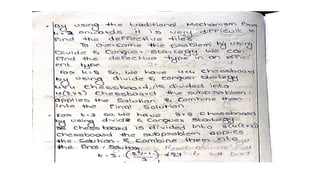 By using the traditional Mechanism from
k=2 onwards it is very difficult to
find the deffective tiles
To overcome the problem by using
Divide & Conquer strategy we can
find the defective type in an effici
ent type
For k=2 so, we have 4x4 chessboard
by using divide & conquer strategy
4x4 chessboard is divided into
4(2x2) chessboards the subproblem
applies the solution & combine them
into the final solution.
For k=3 so, we have 8x8 chessboard
by using divide & conquer strategy
8x8 chessboard is divided into
chessboard the subproblem applies
the solution & combine them into
the final solution